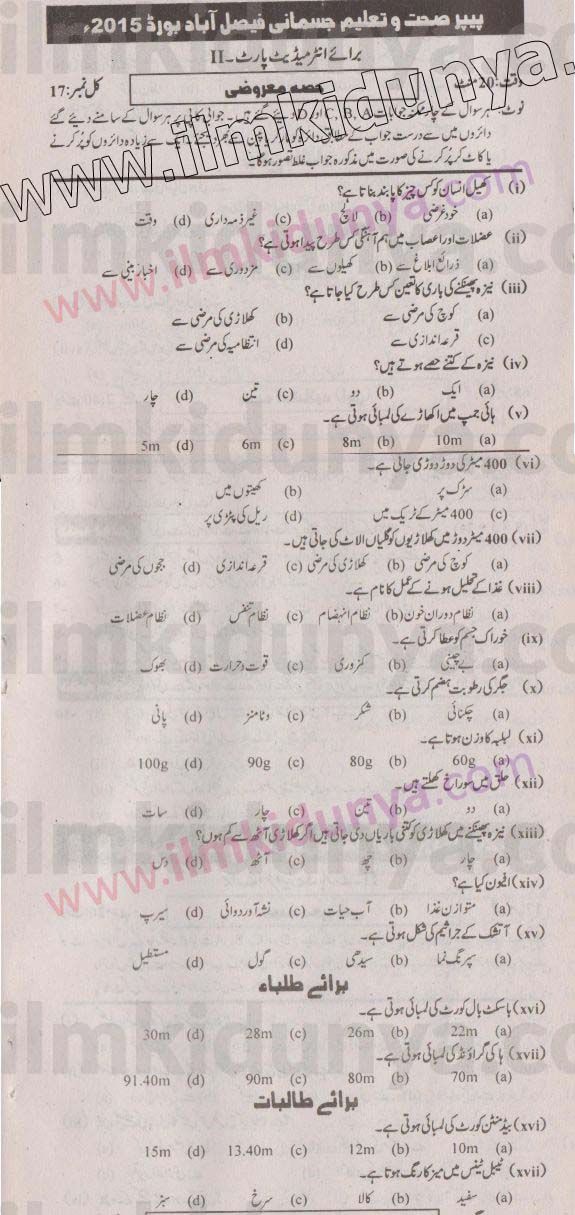 پیپر صحت و تعلیم جسمانی فیصل آباد بورڈ 2015ء
برائے انٹرمیڈیٹ پارٹ۔II
وقت:20 منٹ حصہ معروضی کل نمبر:17
نوٹ:۔ہر سوال کے چار ممکنہ جوابات C, B, A اور D دیئے گئے ہیں۔ جوابی کاپی پر ہر سوال کے سامنے دیئے گئے
دائروں میں سے درست جواب کے مطابق ایک سے زیادہ دائروں کو پُر کرنے
یا کاٹ کر پُر کرنے کی صورت میں مذکورہ جواب غلط تصور ہوگا۔
(i) کھیل انسان کو کس چیز کا پابند بناتا ہے؟
(a) خود غرضی (b) لالچ (c) غیر ذمہ داری (d) وقت
(ii) عضلات اور اعصاب میں ہم آہنگی کس طرح پیدا ہوتی ہے؟
(a) ذرائع ابلاغ سے (b) کھیلوں سے (c) مزدوری سے (d) اخبار بینی سے
(iii) نیزہ پھینکنے کی باری کا تعین کس طرح کیا جاتا ہے؟
(a) کوچ کی مرضی سے (b) کھلاڑی کی مرضی سے
(c) قرعہ اندازی سے (d) انتظامیہ کی مرضی سے
(iv) نیزہ کے کتنے حصے ہوتے ہیں؟
(a) ایک (b) دو (c) تین (d) چار
(v) ہائی جمپ میں اکھاڑے کی لمبائی ہوتی ہے۔
(a) 10m (b) 8m (c) 6m (d) 5m
(vi) 400 میٹر کی دوڑ دوڑی جاتی ہے۔
(a) سڑک پر (b) کھیتوں میں
(c) 400 میٹر کے ٹریک میں (d) ریل کی پٹڑی پر
(vii) 400 میٹر دوڑ میں کھلاڑیوں کو گلیاں الاٹ کی جاتی ہیں۔
(a) کوچ کی مرضی (b) کھلاڑی کی مرضی (c) قرعہ اندازی (d) ججوں کی مرضی
(viii) غذا کے تحلیل ہونے کے عمل کا نام ہے۔
(a) نظام دوران خون (b) نظام انہضام (c) نظام تنفس (d) نظام عضلات
(ix) خوراک جسم کو عطا کرتی ہے۔
(a) بے چینی (b) کمزوری (c) قوت و حرارت (d) بھوک
(x) جگر کی رطوبت ہضم کرتی ہے۔
(a) چکنائی (b) شکر (c) وٹامنز (d) پانی
(xi) لبلبہ کا وزن ہوتا ہے۔
(a) 60g (b) 80g (c) 90g (d) 100g
(xii) حلق میں سوراخ کھلتے ہیں۔
(a) دو (b) تین (c) چار (d) سات
(xiii) نیزہ پھینکنے میں کھلاڑی کو کتنی باریاں دی جاتی ہیں اگر کھلاڑی آٹھ سے کم ہوں؟
(a) چار (b) چھ (c) آٹھ (d) دس
(xiv) افیون کیا ہے؟
(a) متوازن غذا (b) آب حیات (c) نشہ آور دوائی (d) سیرپ
(xv) آتشک کے جراثیم کی شکل ہوتی ہے۔
(a) سپرنگ نما (b) سیدھی (c) گول (d) مستطیل
برائے طلباء
(xvi) باسکٹ بال کورٹ کی لمبائی ہوتی ہے۔
(a) 22m (b) 26m (c) 28m (d) 30m
(xvii) ہاکی گراؤنڈ کی لمبائی ہوتی ہے۔
(a) 70m (b) 80m (c) 90m (d) 91.40m
برائے طالبات
(xvi) بیڈمنٹن کورٹ کی لمبائی ہوتی ہے۔
(a) 10m (b) 12m (c) 13.40m (d) 15m
(xvii) ٹیبل ٹینس میں میز کا رنگ ہوتا ہے۔
(a) سفید (b) کالا (c) سرخ (d) سبز
www.ilmkidunya.com